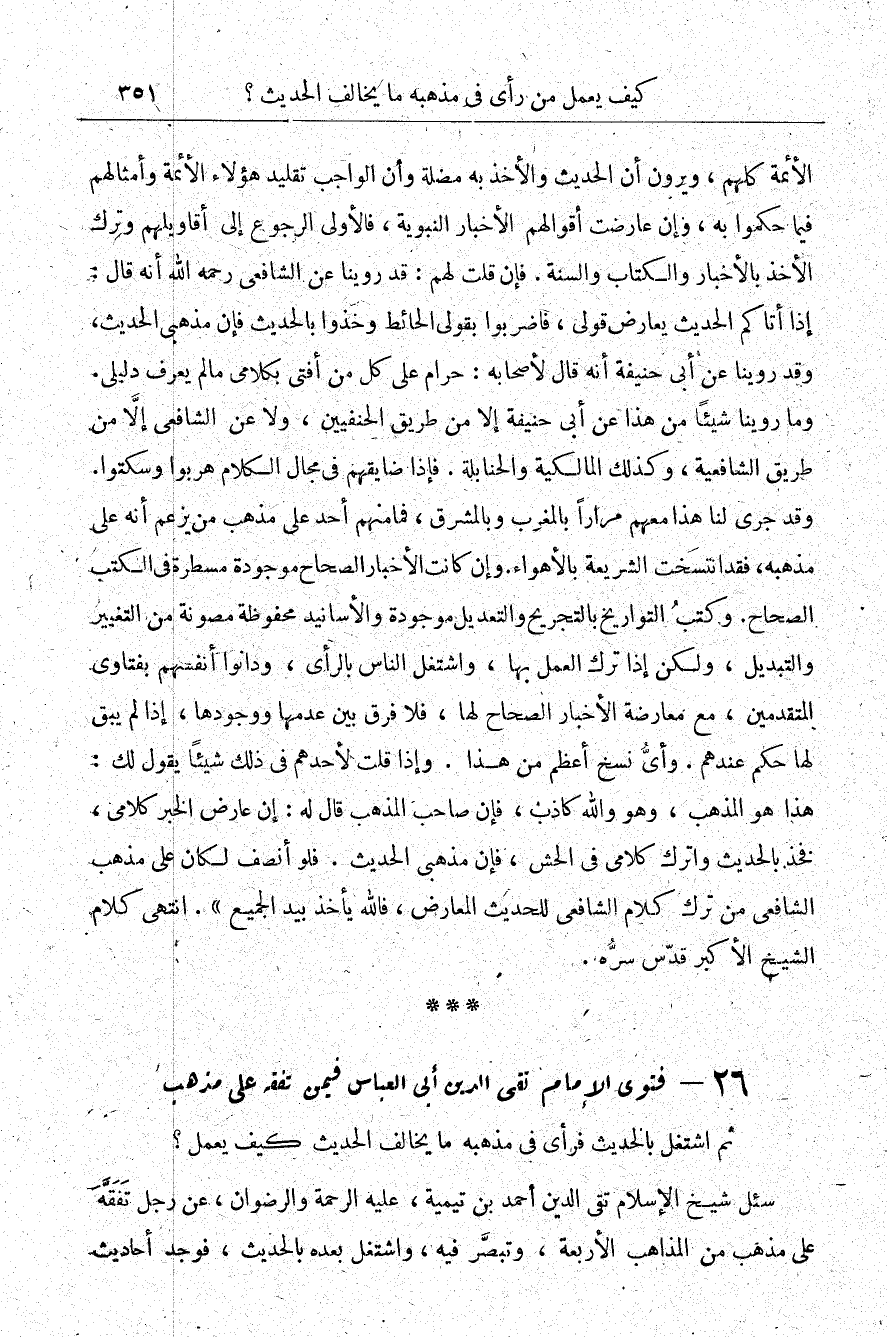 كيف يعمل من رأى فى مذهبه ما يخالف الحديث ؟ ٣٥١
الأئمة كلهم ، ويرون أن الحديث والأخذ به مضلة وأن الواجب تقليد هؤلاء الأئمة وأمثالهم
فيما حكموا به ، وإن عارضت أقوالهم الأخبار النبوية ، فالأولى الرجوع إلى أقاويلهم وترك
الأخذ بالأخبار والكتاب والسنة . فإن قلت لهم : قد روينا عن الشافعى رحمه الله أنه قال :
إذا أتاكم الحديث يعارض قولى ، فاضربوا بقولى الحائط وخذوا بالحديث فإن مذهبى الحديث،
وقد روينا عن أبى حنيفة أنه قال لأصحابه : حرام على كل من أفتى بكلامى مالم يعرف دليلى.
وما روينا شيئًا من هذا عن أبى حنيفة إلا من طريق الحنفيين ، ولا عن الشافعى إلَّا من
طريق الشافعية ، وكذلك المالكية والحنابلة . فإذا ضايقهم فى مجال الكلام هربوا وسكتوا.
وقد جرى لنا هذا معهم مراراً بالمغرب وبالمشرق ، فمامنهم أحد على مذهب من يزعم أنه على
مذهبه، فقد انتسخت الشريعة بالأهواء. وإن كانت الأخبار الصحاح موجودة مسطرة فى الكتب
الصحاح. وكتبُ التواريخ بالتجريح والتعديل موجودة والأسانيد محفوظة مصونة من التغيير
والتبديل ، ولكن إذا ترك العمل بها ، واشتغل الناس بالرأى ، ودانوا أنفسهم بفتاوى
المتقدمين ، مع معارضة الأخبار الصحاح لها ، فلا فرق بين عدمها ووجودها ، إذا لم يبق
لها حكم عندهم . وأىُّ نسخ أعظم من هـذا . وإذا قلت لأحدهم فى ذلك شيئًا يقول لك :
هذا هو المذهب ، وهو والله كاذب ، فإن صاحب المذهب قال له : إن عارض الخبر كلامى ،
فخذ بالحديث واترك كلامى فى الحش ، فإن مذهبى الحديث . فلو أنصف لكان على مذهب
الشافعى من ترك كلام الشافعى للحديث المعارض ، فالله يأخذ بيد الجميع » . انتهى كلام
الشيخ الأكبر قدّس سرُّه .
***
٢٦ — فتوى الإمام تقى الدين أبى العباس فيمن تفقه على مذهب
ثم اشتغل بالحديث فرأى فى مذهبه ما يخالف الحديث كيف يعمل ؟
سئل شيخ الإسلام تقى الدين أحمد بن تيمية ، عليه الرحمة والرضوان ، عن رجل تَفَقَّهَ
على مذهب من المذاهب الأربعة ، وتبصَّر فيه ، واشتغل بعده بالحديث ، فوجد أحاديث